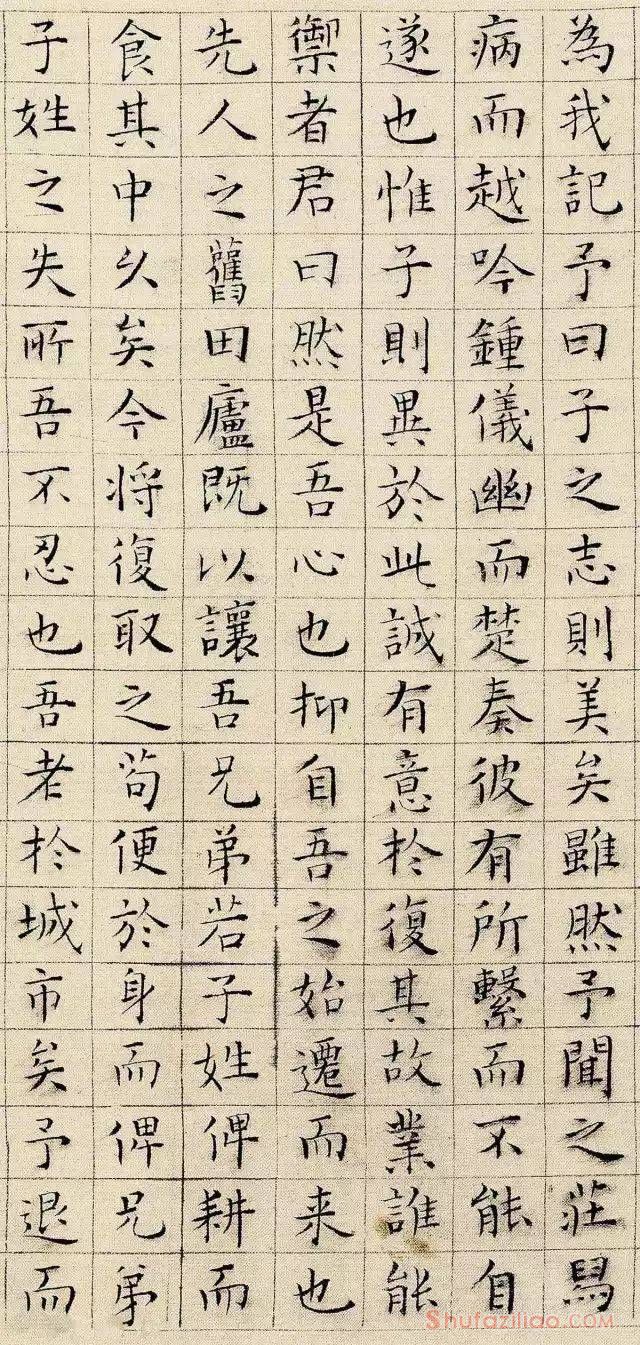 為我記予曰子之志則美矣雖然予聞之莊舄
病而越吟鍾儀幽而楚奏彼有所繫而不能自
遂也惟子則異於此誠有意於復其故業誰能
禦者君曰然是吾心也抑自吾之始遷而来也
先人之舊田廬既以讓吾兄弟若子姓俾耕而
食其中久矣今将復取之苟便於身而俾兄弟
子姓之失所吾不忍也吾老於城市矣予退而
Shufaziliao.com